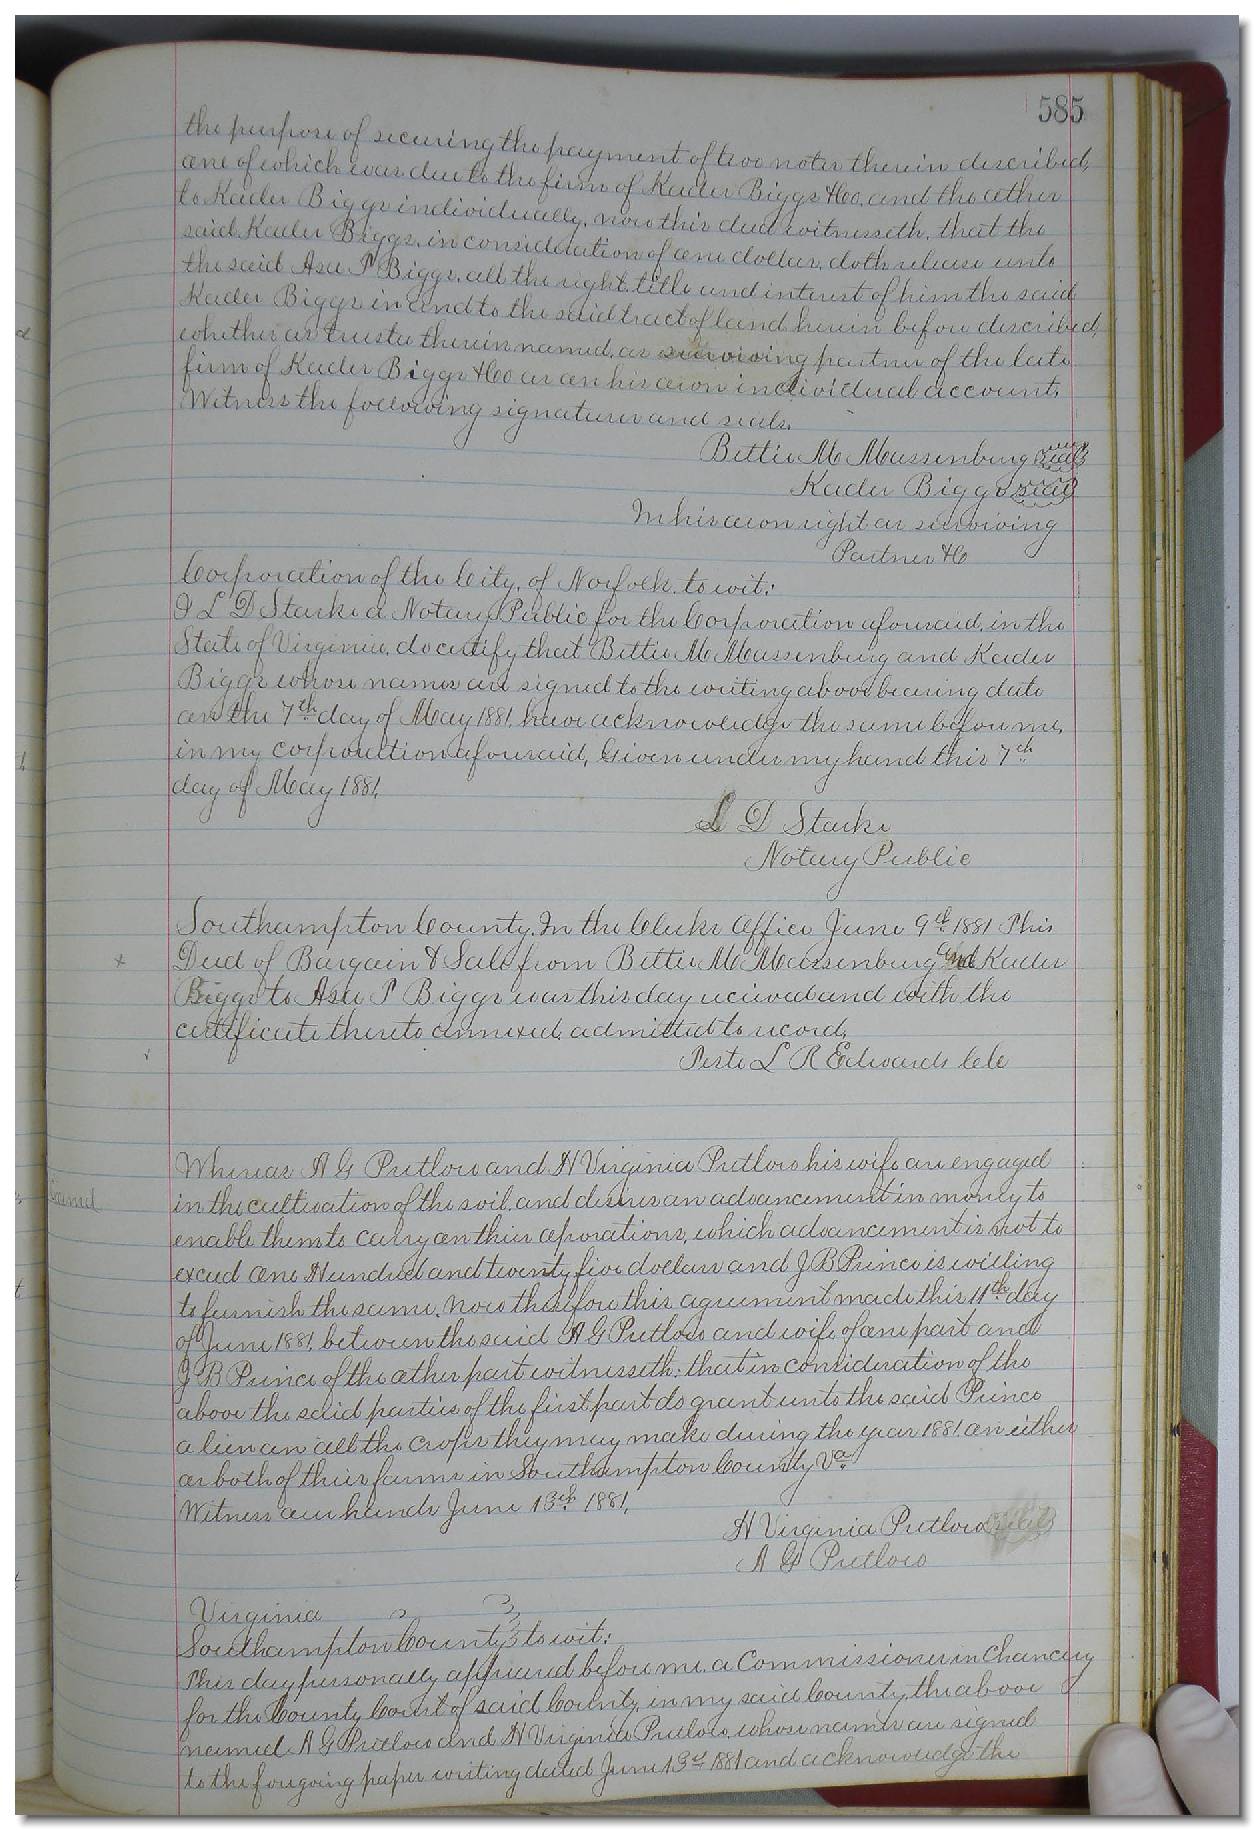 585
the purpose of securing the payment of two notes therein described,
one of which was due to the firm of Kader Biggs & Co, and the other
to Kader Biggs individually, now this deed witnesseth, that the
said Kader Biggs, in consideration of one dollar, doth release unto
the said Asa P Biggs, all the right, title and interest of him the said
Kader Biggs in and to the said tract of land herein before described,
whether as trustee therein named, as surviving partner of the late
firm of Kader Biggs & Co or on his own individual account.
Witness the following signatures and seals.
Bettie M Massenburg seal
Kader Biggs seal
In his own right as surviving
Partner &C
Corporation of the City, of Norfolk, to wit:
I L D Starke a Notary Public for the Corporation aforesaid, in the
State of Virginia, do certify that Bettie M Massenburg and Kader
Biggs whose names are signed to the writing above bearing date
on the 7th day of May 1881, have acknowledge the same before me,
in my corporation aforesaid, Given under my hand this 7th
day of May 1881,
L D Starke
Notary Public
Southampton County, In the Clerks Office June 9th 1881 This
x Deed of Bargain & Sale from Bettie M Massenburg and Kader
Biggs to Asa P Biggs was this day recieved and with the
certificate thereto annexed, admitted to record.
Teste L R Edwards Clc
Whereas A G Pretlow and H Virginia Pretlow his wife are engaged
in the cultivation of the soil, and desires an advancement in money to
enable them to carry on their oporations, which advancement is not to
exceed One Hundred and twenty five dollars and J B Prince is willing
to furnish the same, Now therefore this agreement made this 11th day
of June 1881, between the said A G Pretlow and wife of one part and
J B Prince of the other part witnesseth: that in consideration of the
above the said parties of the first part do grant unto the said Prince
a lien on all the crops they may make during the year 1881 on either
or both of their farms in Southampton County Va
Witness our hands June 13th 1881,
H Virginia Pretlow
A G Pretlow
Virginia
Southampton County to wit:
This day personally appeared before me, a Commissioner in Chancery
for the County Court of said County, in my said County, the above
named A G Pretlow and H Virginia Pretlow, whose names are signed
to the foregoing paper writing dated June 13th 1881 and acknowledge the